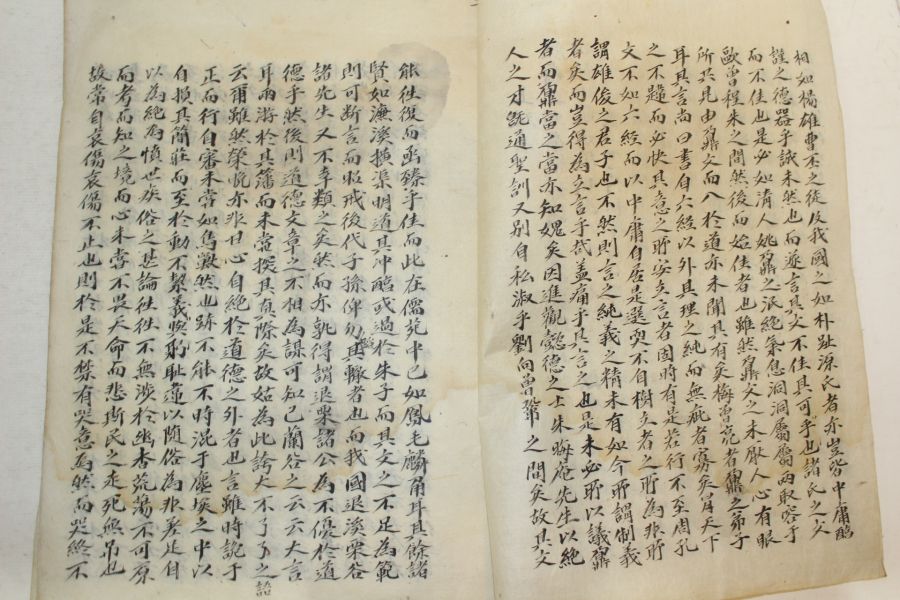 相如楊雄曹丕之徒及我國之如朴趾源氏者亦豈皆中庸酷
謹之德器乎誠未然也而遂言其文不佳其可乎也諸氏之文
而不佳也是必如淸人姚鼐之泯絶氣息洞洞屬屬而取容于
歐曾程朱之間然後而始佳者也雖然鼐文之未厭人心有眼
所共見由鼐文而入於道亦未聞其有矣梅曾亮者鼐之弟子
耳其言尙曰書自六經以外其理之純而無疵者寡矣岸天下
之不韙而必快其意之所安立言者固時有是若行不至周孔
文不如六經而以中庸自居是選耎不自樹立者之所爲非所
謂雄俊之君子也不然則言之純義之精未有如今所謂制義
者矣而豈得爲立言乎哉盖痛乎其言之也是未必所以議鼐
者而鼐當之當亦知媿矣因進觀懿德之士朱晦庵先生以絶
人之才能通聖訓又別自私淑乎劉向曾鞏之間矣故其文
能往復而函臻乎佳而此在儒苑中已如鳳毛麟角耳其餘諸
賢如濂溪橫渠明道其冲酷或過於朱子而其文之不足爲範
則可斷言而收戒後代子孫俾勿其轍者也而我國退溪栗谷
諸先生又不幸類之矣然而亦孰得謂退栗諸公爲不優於道
德乎然後則道德文章之不相爲謀可知已蘭谷之云云大言
耳兩游於其藩而未嘗撰其眞際矣故姑爲此誇大不了了之語
云爾雖然榮悗亦非甘心自絶於道德之外者也言雖時詭于
正而行自審未嘗如鳥獸然也跡不能不時混于塵埃之中以
自損其簡莊而至於動不絜義與恥耻違以隨俗爲非差足自
以爲絶爲憤世疾俗之甚論往往不無涉於幽杳荒蕩不可原
而考而知之境而心未嘗不畏天命而悲斯民之走死無吊也
故常自哀傷哀傷不止也則於是不禁有哭意爲然而哭終不